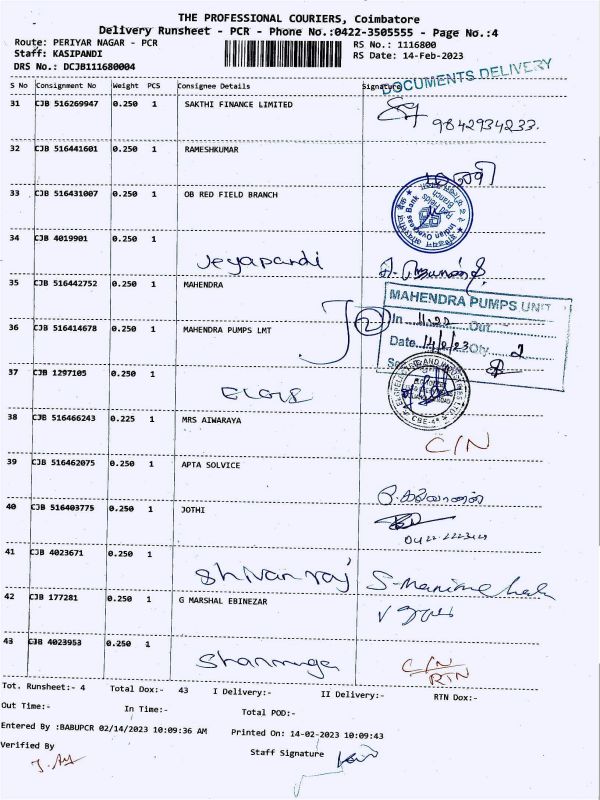 THE PROFESSIONAL COURIERS, Coimbatore
Delivery Runsheet - PCR - Phone No.:0422-3505555 - Page No.:4
Route: PERIYAR NAGAR - PCR
RS No.: 1116800
Staff: KASIPANDI
RS Date: 14-Feb-2023
DRS No.: DCJB111680004
DOCUMENTS DELIVERY
S No Consignment No Weight PCS Consignee Details Signature
31 CJB 516269947 0.250 1 SAKTHI FINANCE LIMITED
9842934233.
32 CJB 516441601 0.250 1 RAMESHKUMAR
33 CJB 516431007 0.250 1 OB RED FIELD BRANCH
Indian Overseas Bank
Red Fields
Branch
34 CJB 4019901 0.250 1
Jeyapandi
35 CJB 516442752 0.250 1 MAHENDRA
MAHENDRA PUMPS UNIT
36 CJB 516414678 0.250 1 MAHENDRA PUMPS LMT
2
In 11.22 Out
Date 14/2/23 Qty 2
37 CJB 1297105 0.250 1
ELGIS
CBE-4
38 CJB 516466243 0.225 1 MRS AIWARAYA
C/N
39 CJB 516462075 0.250 1 APTA SOLVICE
40 CJB 516403775 0.250 1 JOTHI
41 CJB 4023671 0.250 1
Shivanraj
42 CJB 177281 0.250 1 G MARSHAL EBINEZAR
43 CJB 4023953 0.250 1
Shanmuga
C/N
RTN
Tot. Runsheet:- 4 Total Dox:- 43 I Delivery:- II Delivery:- RTN Dox:-
Out Time:- In Time:- Total POD:-
Entered By :BABUPCR 02/14/2023 10:09:36 AM Printed On: 14-02-2023 10:09:43
Verified By Staff Signature